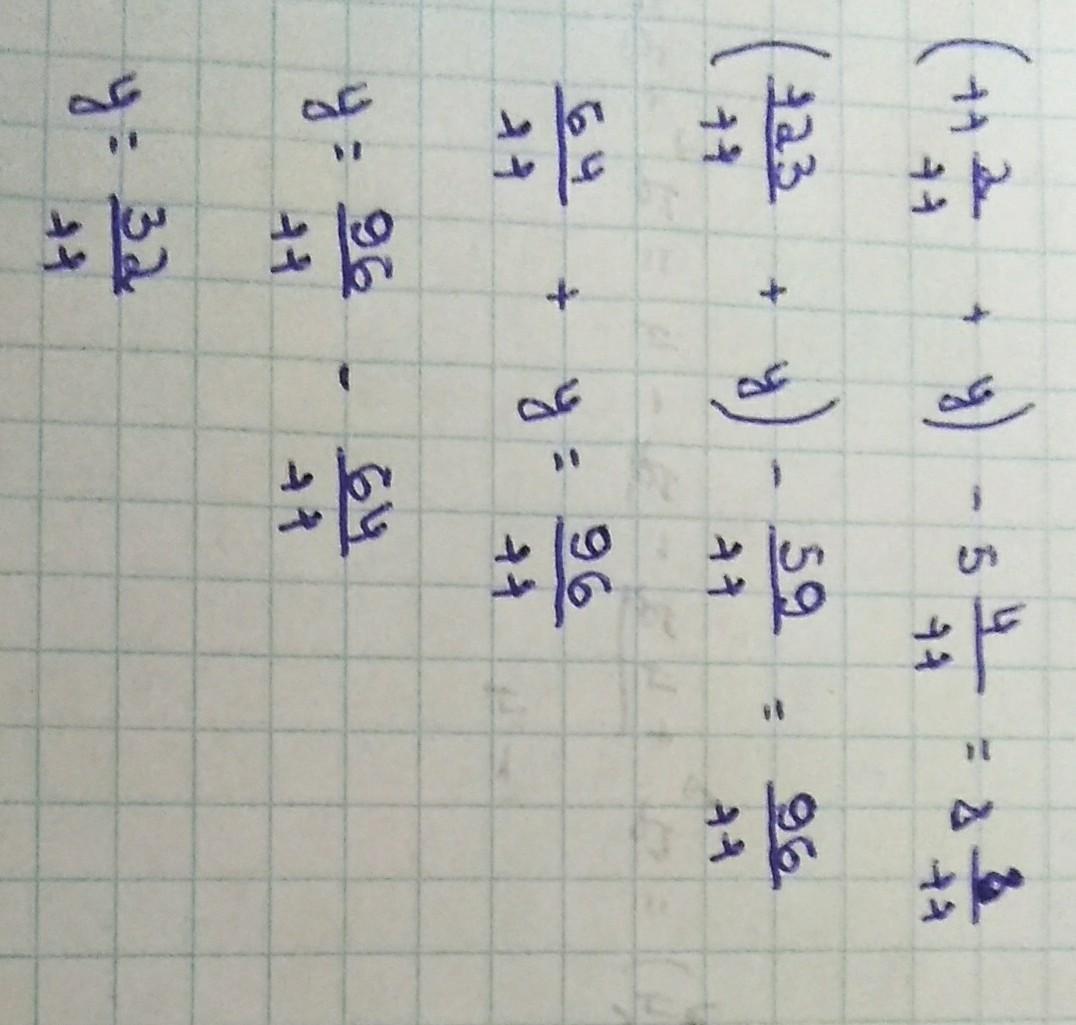 (11 2/11 + y) - 5 4/11 = 8 8/11
(123/11 + y) - 59/11 = 96/11
64/11 + y = 96/11
y = 96/11 - 64/11
y = 32/11